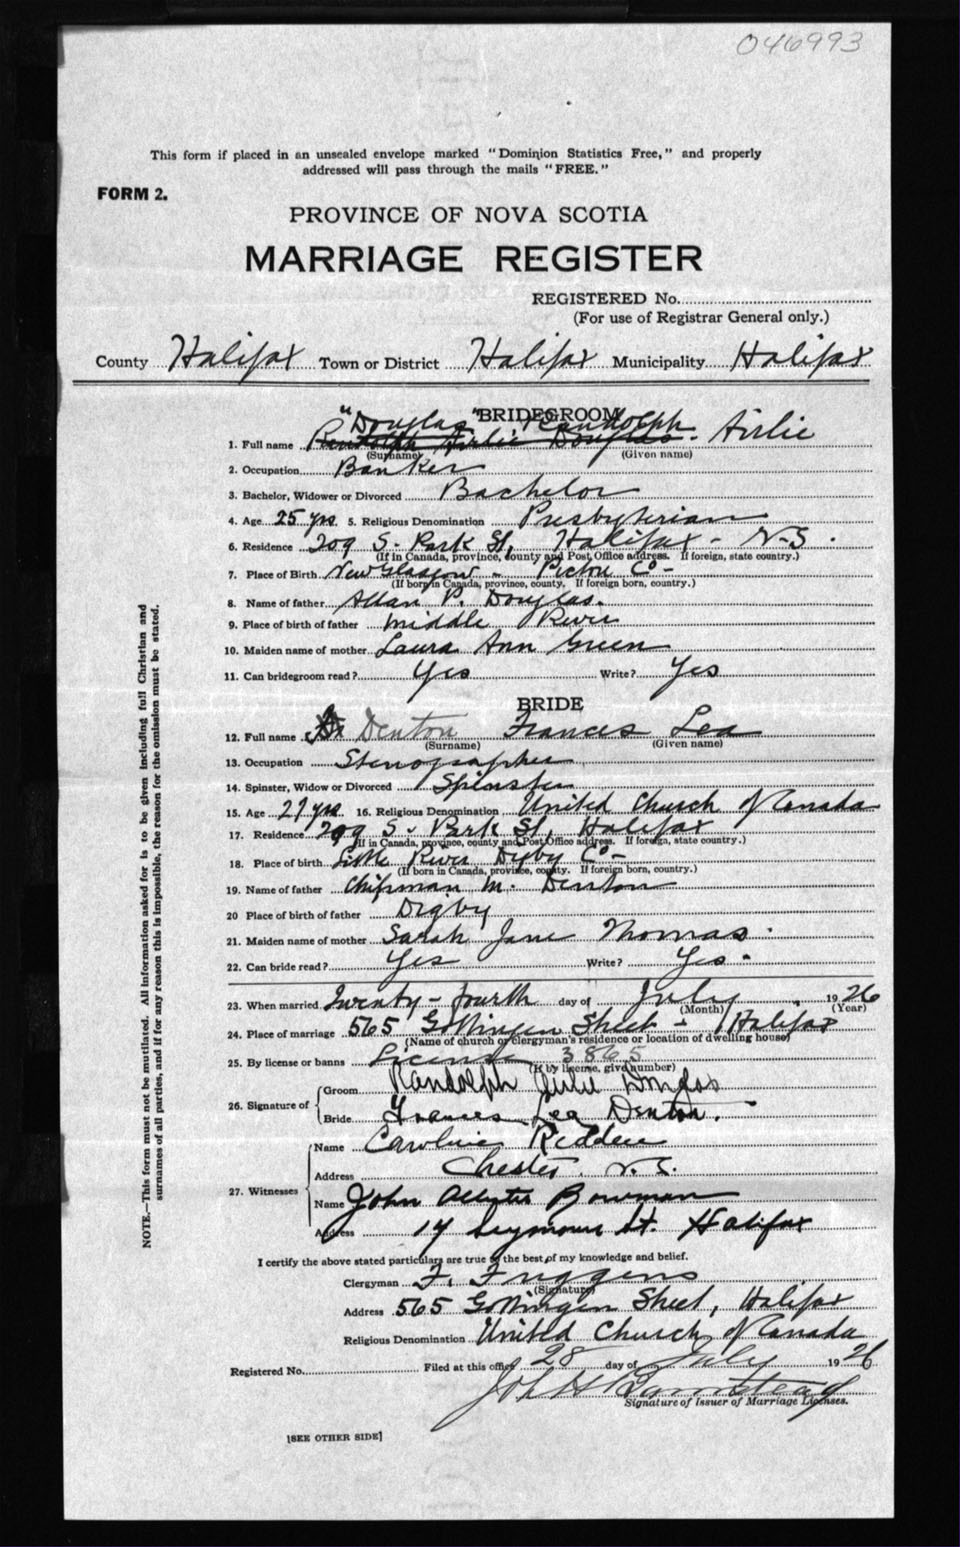 046993
This form if placed in an unsealed envelope marked "Dominion Statistics Free," and properly
addressed will pass through the mails "FREE."
FORM 2.
PROVINCE OF NOVA SCOTIA
MARRIAGE REGISTER
REGISTERED No.
(For use of Registrar General only.)
County Halifax Town or District Halifax Municipality Halifax
BRIDEGROOM
"Douglas "Randolph
1. Full name Randolph Airlie Douglas. Airlie
(Surname) (Given name)
2. Occupation Banker
3. Bachelor, Widower or Divorced Bachelor
4. Age 25 yrs 5. Religious Denomination Presbyterian
6. Residence 209 S. Park St, Halifax - N.S.
(If in Canada, province, county and Post Office address. If foreign, state country.)
7. Place of Birth New Glasgow - Pictou Co -
(If born in Canada, province, county. If foreign born, country.)
8. Name of father Allan P. Douglas.
9. Place of birth of father Middle River
10. Maiden name of mother Laura Ann Green
11. Can bridegroom read? Yes Write? Yes
BRIDE
12. Full name Denton Frances Lea
(Surname) (Given name)
13. Occupation Stenographer
14. Spinster, Widow or Divorced Spinster
15. Age 27 yrs 16. Religious Denomination United Church of Canada
17. Residence 209 S. Park St, Halifax
(If in Canada, province, county and Post Office address. If foreign, state country.)
18. Place of birth Little River Digby Co -
(If born in Canada, province, county. If foreign born, country.)
19. Name of father Chipman M. Denton
20 Place of birth of father Digby
21. Maiden name of mother Sarah Jane Thomas.
22. Can bride read? Yes Write? Yes.
23. When married Twenty-fourth day of July 1926
(Month) (Year)
24. Place of marriage 565 Gottingen Street - Halifax
(Name of church or clergyman's residence or location of dwelling house)
25. By license or banns License 3865
(If by license, give number)
26. Signature of Groom Randolph Airlie Douglas
Bride Frances Lea Denton.
27. Witnesses Name Caroline Redden
Address Chester. N.S.
Name John Bowman
Address 14 Seymour St. Halifax
I certify the above stated particulars are true to the best of my knowledge and belief.
Clergyman F. Friggens
(Signature)
Address 565 Gottingen Street, Halifax
Religious Denomination United Church of Canada
Registered No. Filed at this office 28 day of July 1926
Signature of Issuer of Marriage Licenses.
[SEE OTHER SIDE]
NOTE.—This form must not be mutilated. All information asked for is to be given including full Christian and
surnames of all parties, and if for any reason this is impossible, the reason for the omission must be stated.